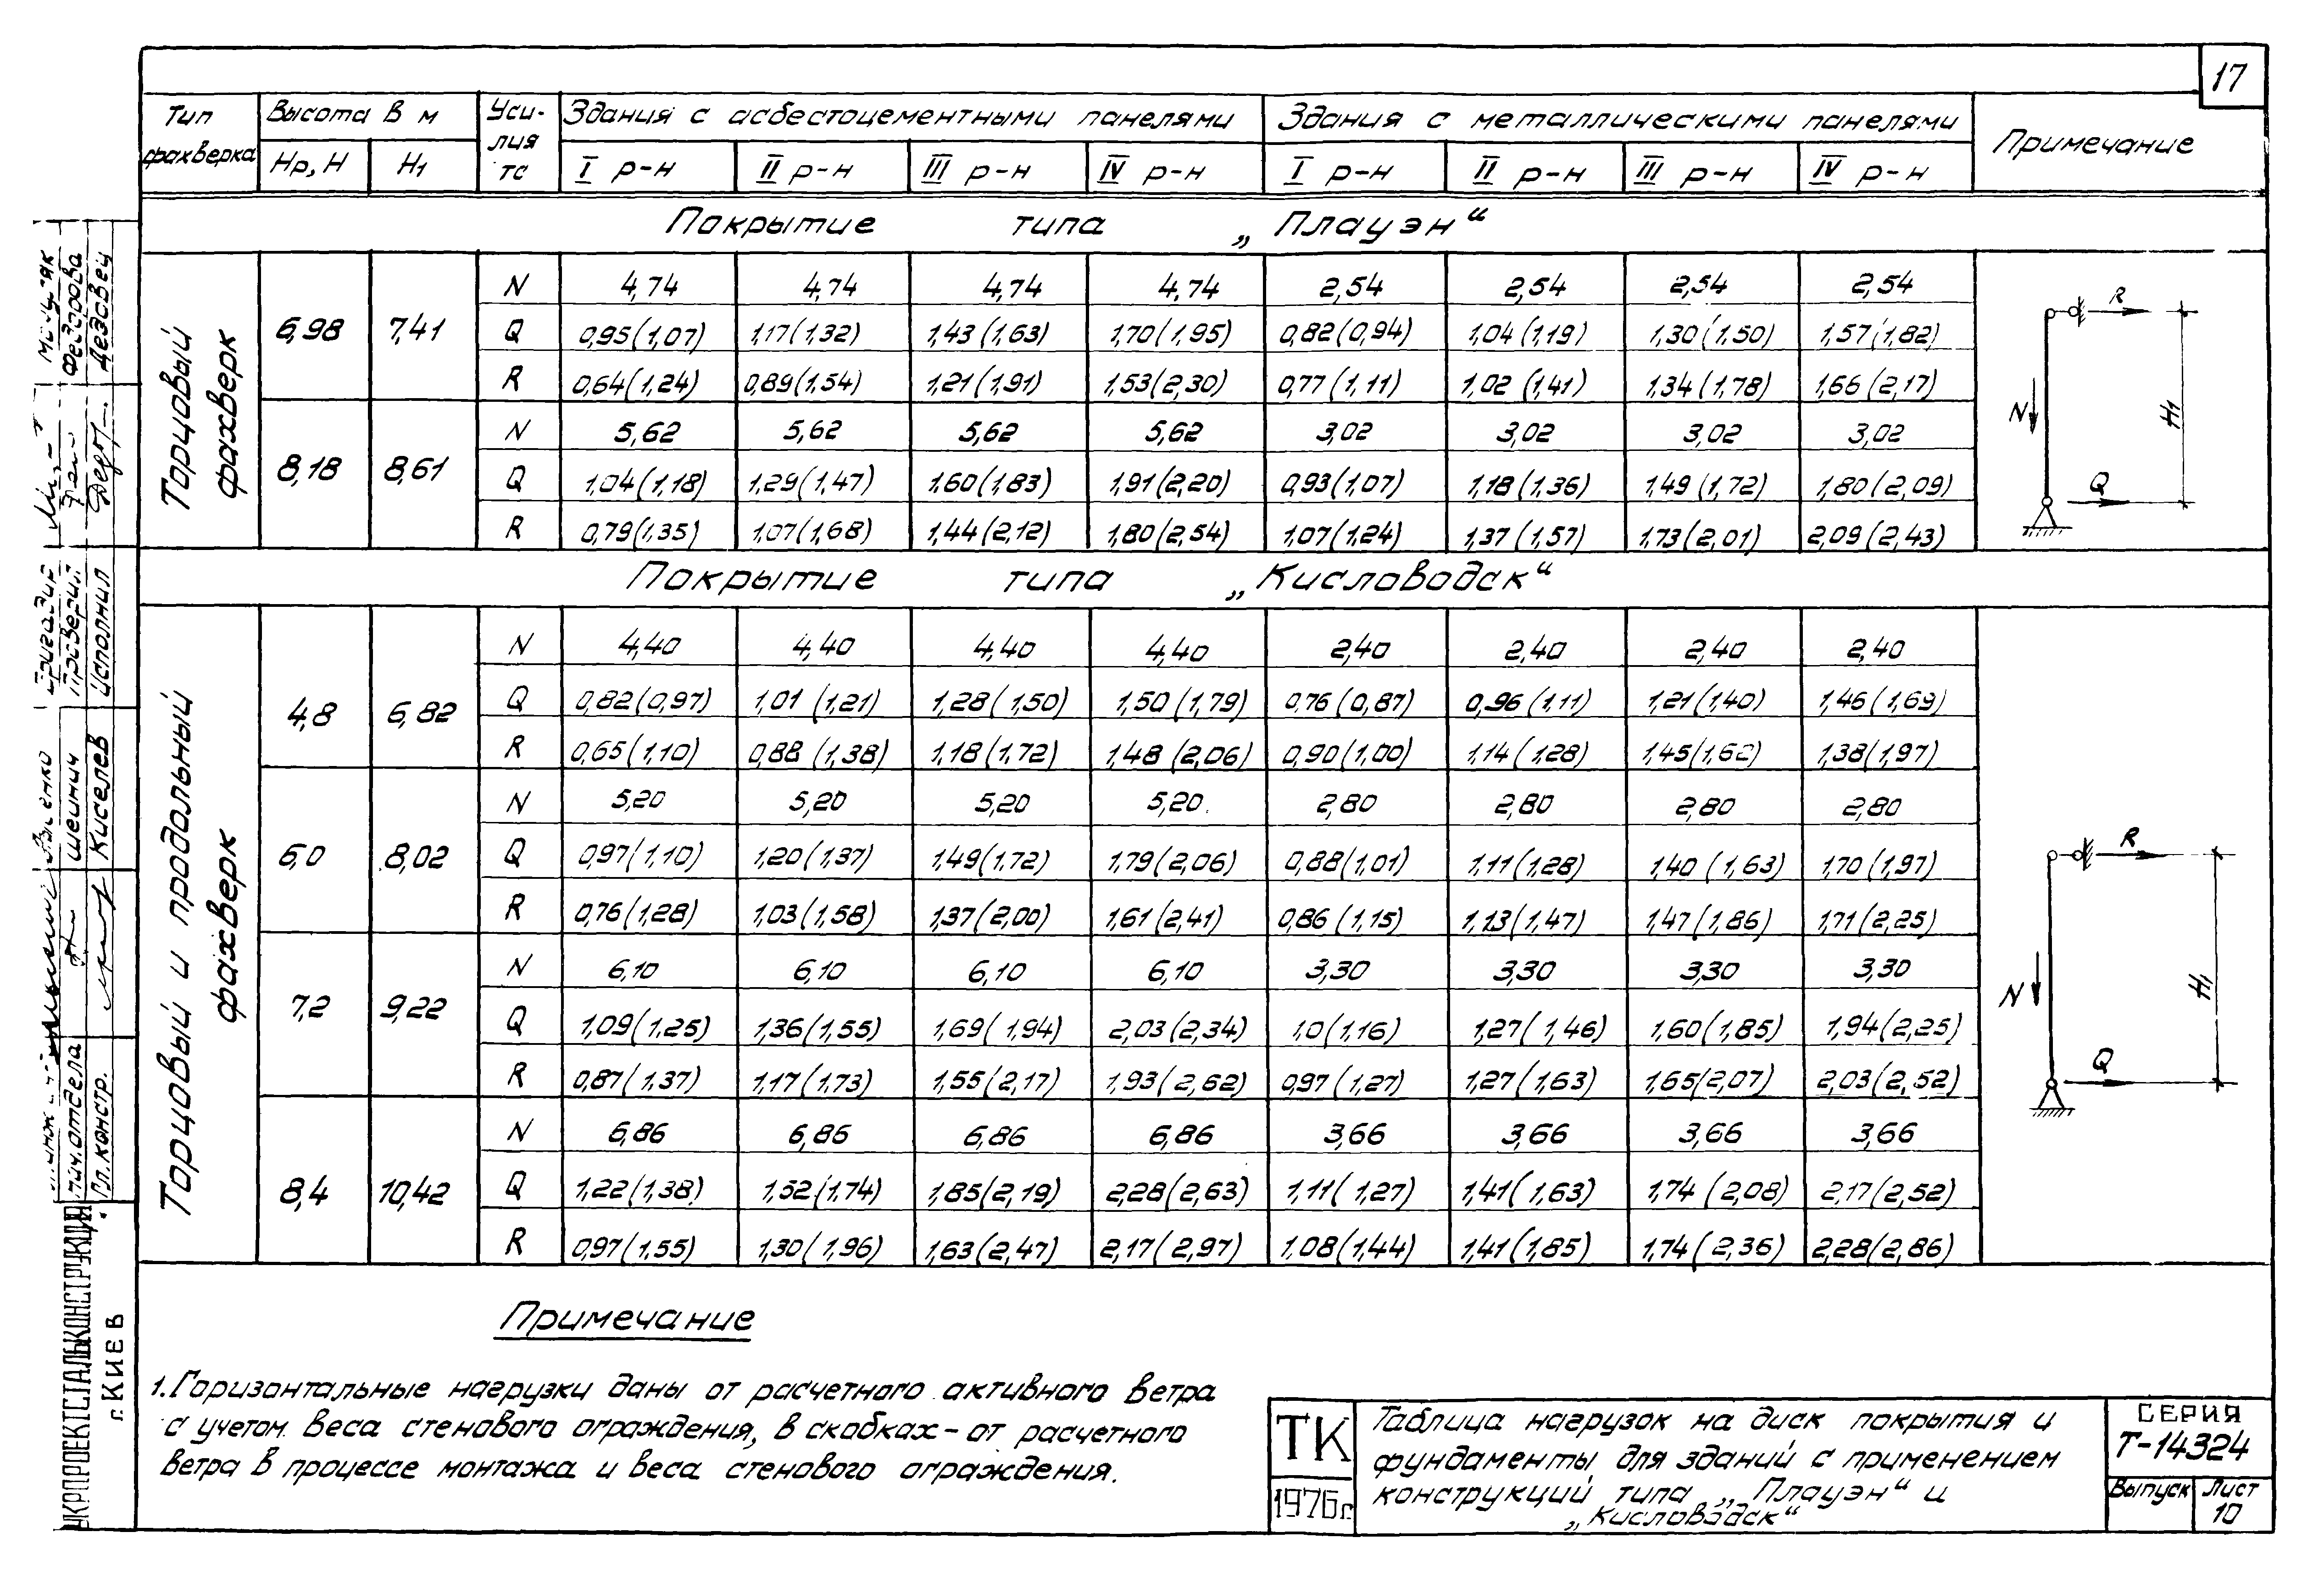 17
Тип фахверка | Высота в м | Усилия тс | Здания с асбестоцементными панелями | Здания с металлическими панелями | Примечание
Hр, H | H1 | I р-н | II р-н | III р-н | IV р-н | I р-н | II р-н | III р-н | IV р-н
Покрытие типа „Плауэн“
Торцовый фахверк
6,98 | 7,41
N | 4,74 | 4,74 | 4,74 | 4,74 | 2,54 | 2,54 | 2,54 | 2,54
Q | 0,95(1,07) | 1,17(1,32) | 1,43(1,63) | 1,70(1,95) | 0,82(0,94) | 1,04(1,19) | 1,30(1,50) | 1,57(1,82)
R | 0,64(1,24) | 0,89(1,54) | 1,21(1,91) | 1,53(2,30) | 0,77(1,11) | 1,02(1,41) | 1,34(1,78) | 1,66(2,17)
8,18 | 8,61
N | 5,62 | 5,62 | 5,62 | 5,62 | 3,02 | 3,02 | 3,02 | 3,02
Q | 1,04(1,18) | 1,29(1,47) | 1,60(1,83) | 1,91(2,20) | 0,93(1,07) | 1,18(1,36) | 1,49(1,72) | 1,80(2,09)
R | 0,79(1,35) | 1,07(1,68) | 1,44(2,12) | 1,80(2,54) | 1,07(1,24) | 1,37(1,57) | 1,73(2,01) | 2,09(2,43)
R
N
H1
Q
Покрытие типа „Кисловодск“
Торцовый и продольный фахверк
4,8 | 6,82
N | 4,40 | 4,40 | 4,40 | 4,40 | 2,40 | 2,40 | 2,40 | 2,40
Q | 0,82(0,97) | 1,01(1,21) | 1,28(1,50) | 1,50(1,79) | 0,76(0,87) | 0,96(1,11) | 1,21(1,40) | 1,46(1,69)
R | 0,65(1,10) | 0,88(1,38) | 1,18(1,72) | 1,48(2,06) | 0,90(1,00) | 1,14(1,28) | 1,45(1,62) | 1,38(1,97)
6,0 | 8,02
N | 5,20 | 5,20 | 5,20 | 5,20 | 2,80 | 2,80 | 2,80 | 2,80
Q | 0,97(1,10) | 1,20(1,37) | 1,49(1,72) | 1,79(2,06) | 0,88(1,01) | 1,11(1,28) | 1,40(1,63) | 1,70(1,97)
R | 0,76(1,28) | 1,03(1,58) | 1,37(2,00) | 1,61(2,41) | 0,86(1,15) | 1,13(1,47) | 1,47(1,86) | 1,71(2,25)
7,2 | 9,22
N | 6,10 | 6,10 | 6,10 | 6,10 | 3,30 | 3,30 | 3,30 | 3,30
Q | 1,09(1,25) | 1,36(1,55) | 1,69(1,94) | 2,03(2,34) | 1,0(1,16) | 1,27(1,46) | 1,60(1,85) | 1,94(2,25)
R | 0,87(1,37) | 1,17(1,73) | 1,55(2,17) | 1,93(2,62) | 0,97(1,27) | 1,27(1,63) | 1,65(2,07) | 2,03(2,52)
8,4 | 10,42
N | 6,86 | 6,86 | 6,86 | 6,86 | 3,66 | 3,66 | 3,66 | 3,66
Q | 1,22(1,38) | 1,52(1,74) | 1,85(2,19) | 2,28(2,63) | 1,11(1,27) | 1,41(1,63) | 1,74(2,08) | 2,17(2,52)
R | 0,97(1,55) | 1,30(1,96) | 1,63(2,47) | 2,17(2,97) | 1,08(1,44) | 1,41(1,85) | 1,74(2,36) | 2,28(2,86)
R
N
H1
Q
Примечание
1. Горизонтальные нагрузки даны от расчетного активного ветра
с учетом веса стенового ограждения, в скобках – от расчетного
ветра в процессе монтажа и веса стенового ограждения.
ТК
1976г.
Таблица нагрузок на диск покрытия и
фундаменты для зданий с применением
конструкций типа „Плауэн“ и
„Кисловодск“
СЕРИЯ
Т-14324
Выпуск | Лист
10
Федорова
Проверил
Исполнил
Шейнин
Киселев
Нач. отдела
Гл. констр.
УКРПРОЕКТСТАЛЬКОНСТРУКЦИЯ
г. Киев